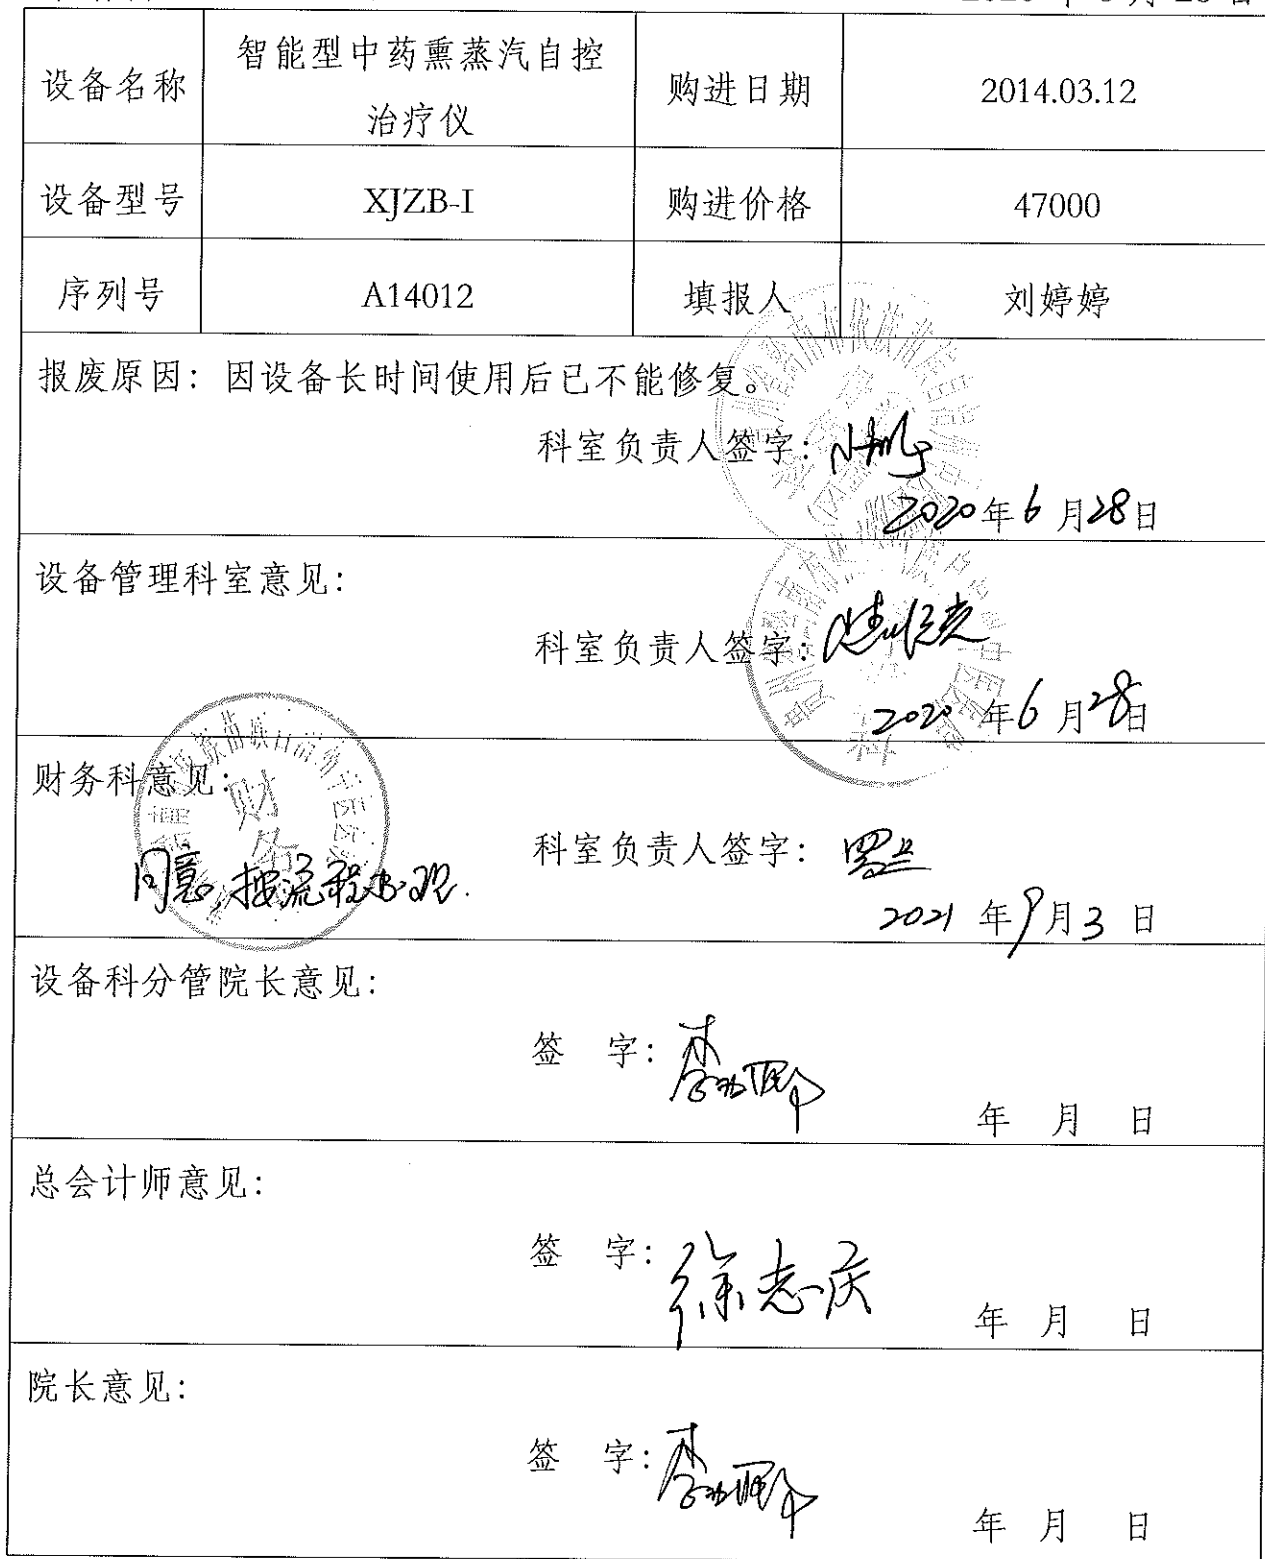 设备名称 智能型中药熏蒸汽自控治疗仪 购进日期 2014.03.12
设备型号 XJZB-I 购进价格 47000
序列号 A14012 填报人 刘婷婷
报废原因：因设备长时间使用后已不能修复。
科室负责人签字：
2020年6月28日
设备管理科室意见：
科室负责人签字：
2020年6月28日
财务科意见：
财务
同意,按流程办理.
科室负责人签字：罗兰
2021年9月3日
设备科分管院长意见：
签 字：
年 月 日
总会计师意见：
签 字：徐志庆
年 月 日
院长意见：
签 字：
年 月 日